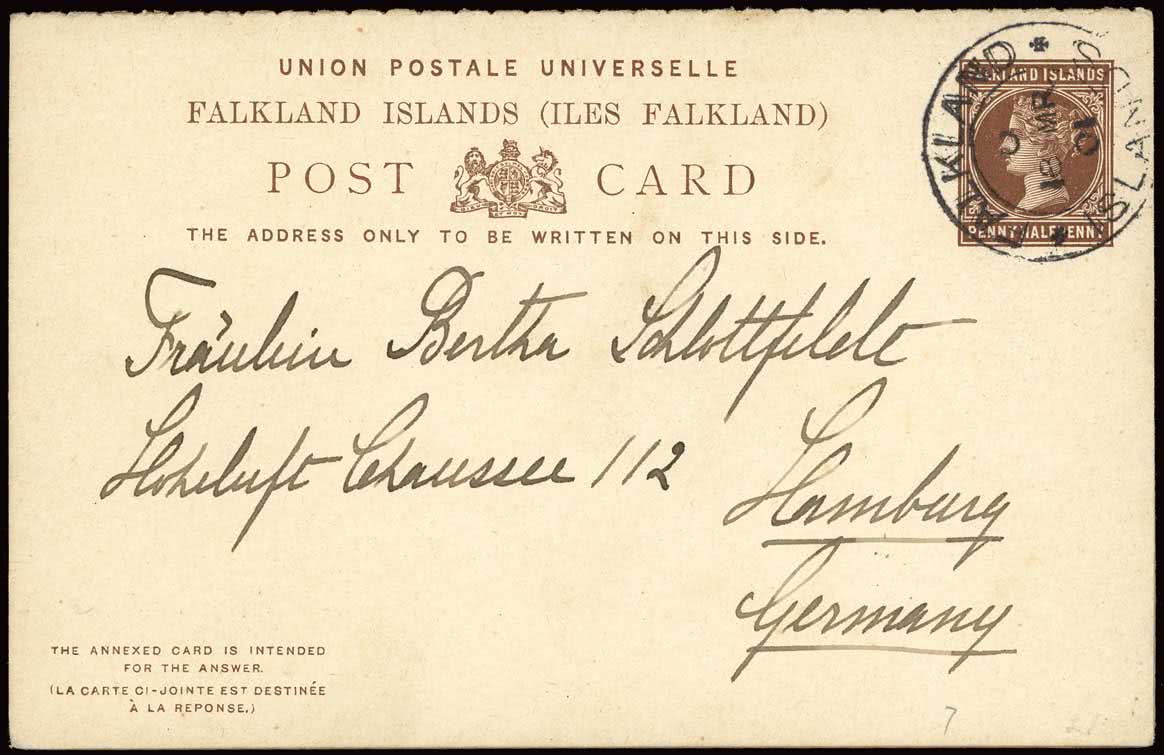 UNION POSTALE UNIVERSELLE
FALKLAND ISLANDS (ILES FALKLAND)
POST CARD
THE ADDRESS ONLY TO BE WRITTEN ON THIS SIDE.
FALKLAND ISLANDS
PENNY HALFPENNY
FALKLAND ISLANDS
C
18 MR
Fräulein Bertha Schlottfeldt
Hoheluft Chaussee 112
Hamburg
Germany
THE ANNEXED CARD IS INTENDED
FOR THE ANSWER.
(LA CARTE CI-JOINTE EST DESTINÉE
À LA REPONSE.)
7